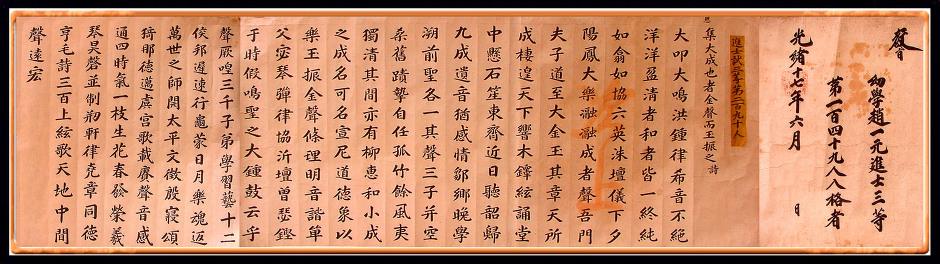 幼學趙一元進士三等
第一百四十九人八格者
光緒十七年六月 日
集大成也者金聲而玉振之 詩
大叩大鳴洪鍾律希音不絶
洋洋盈清者和者皆一終純
如翕如協六英洙壇儀下夕
陽鳳大樂瀜瀜成者聲吾門
夫子道至大金玉其章天所
成棲遑天下響木鐸絃誦堂
中懸石笙東齊近日聽韶歸
九成遺音猶感情鄒鄉晩學
溯前聖各一其聲三子并空
桒舊蹟摯自任孤竹餘風夷
獨清其間亦有柳惠和小成
之成名可名宣尼道德象以
樂王振金聲條理明音諧簞
父宓琴彈律協沂壇曾瑟鏗
于時假鳴聖之大鍾鼓云乎
聲厥喤三千子弟學習藝十二
侯邦遲速行龜蒙日月樂魂返
萬世之師開太平文做殷寢頌
猗那德邁虞宮歌載賡聲音感
通四時氣一枝生花春發榮羲
琴昊磬並制刱軒律堯章同德
亨毛詩三百上絃歌天地中間
聲遠宏